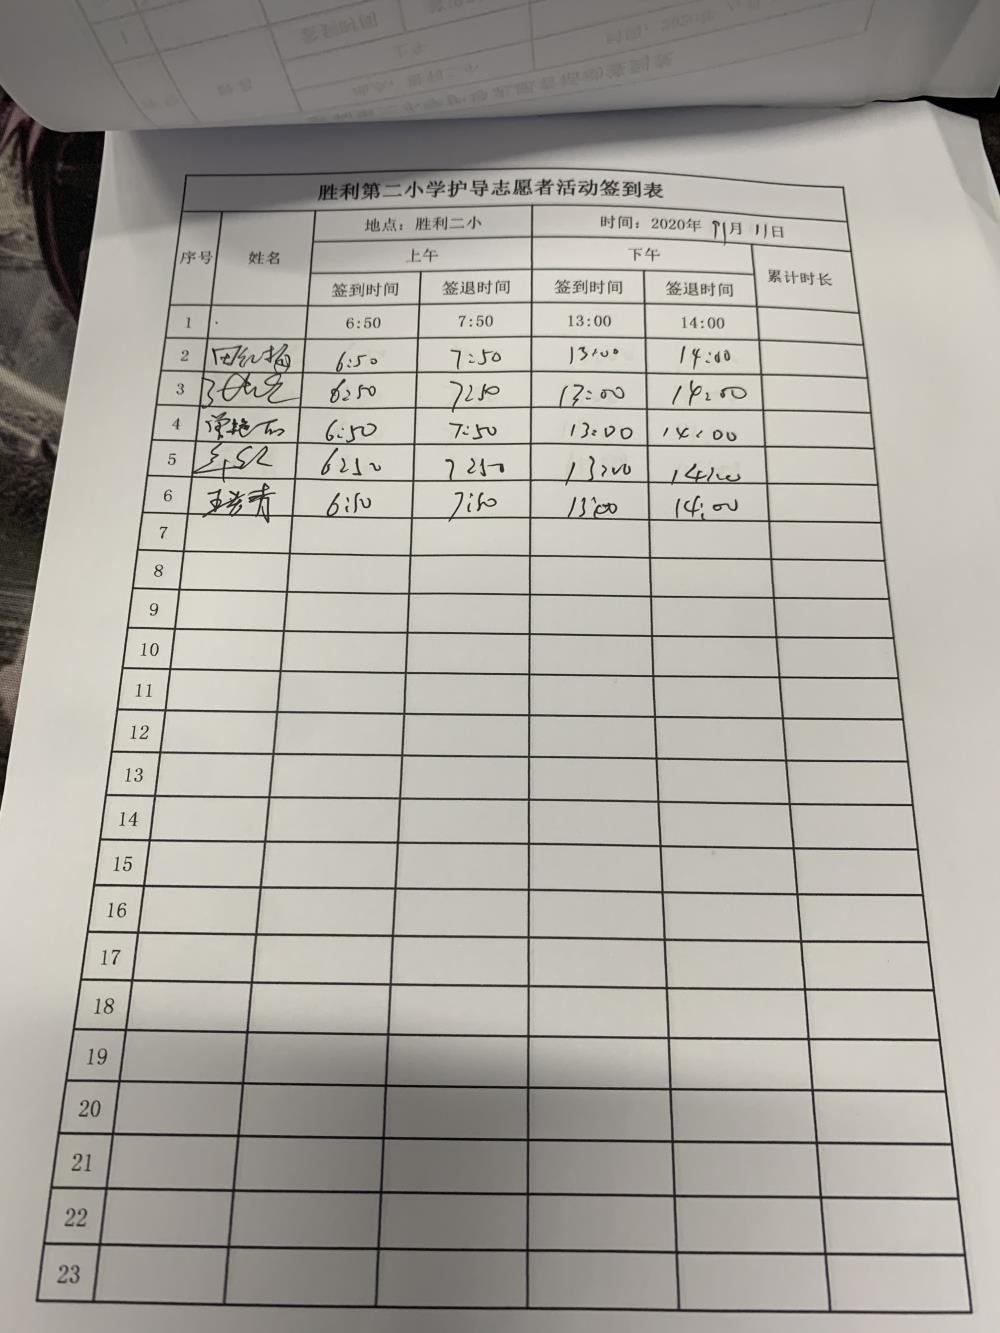 胜利第二小学护导志愿者活动签到表
序号 姓名 地点：胜利二小 时间：2020年 月 11日
上午 下午 累计时长
签到时间 签退时间 签到时间 签退时间
1 6:50 7:50 13:00 14:00
2 6:50 7:50 13:00 14:00
3 6:50 7:50 13:00 14:00
4 6:50 7:50 13:00 14:00
5 6:50 7:50 13:00 14:00
6 6:50 7:50 13:00 14:00
7
8
9
10
11
12
13
14
15
16
17
18
19
20
21
22
23